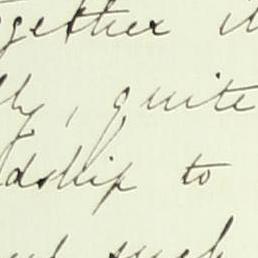 gether it
ly, quite
dship to
such